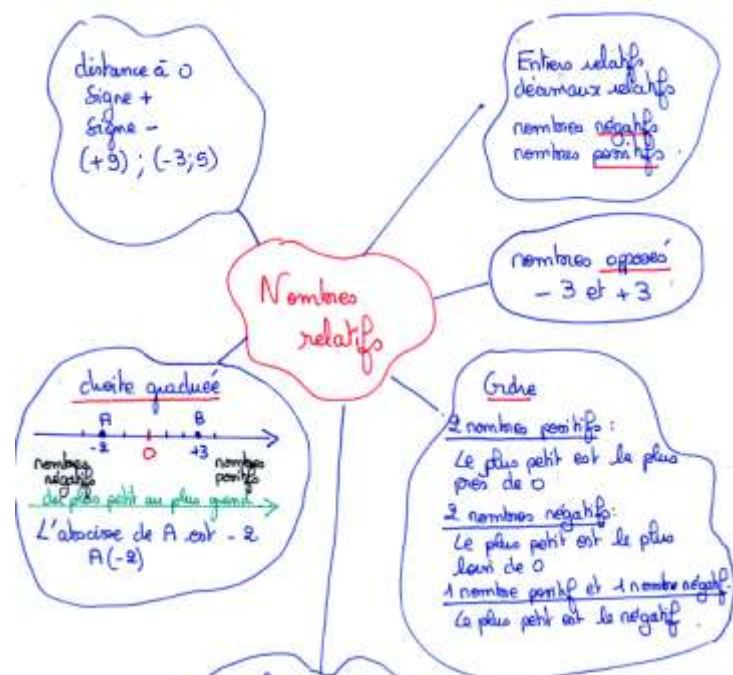 distance à 0
Signe +
Signe -
(+9) ; (-3,5)
Entiers relatifs
décimaux relatifs
nombres négatifs
nombres positifs
nombres opposés
- 3 et + 3
Nombres
relatifs
droite graduée
A B
-2 0 +3
nombres nombres
négatifs positifs
du plus petit au plus grand
L'abscisse de A est - 2
A(-2)
Ordre
2 nombres positifs :
Le plus petit est le plus
près de 0
2 nombres négatifs :
Le plus petit est le plus
loin de 0
1 nombre positif et 1 nombre négatif.
Le plus petit est le négatif